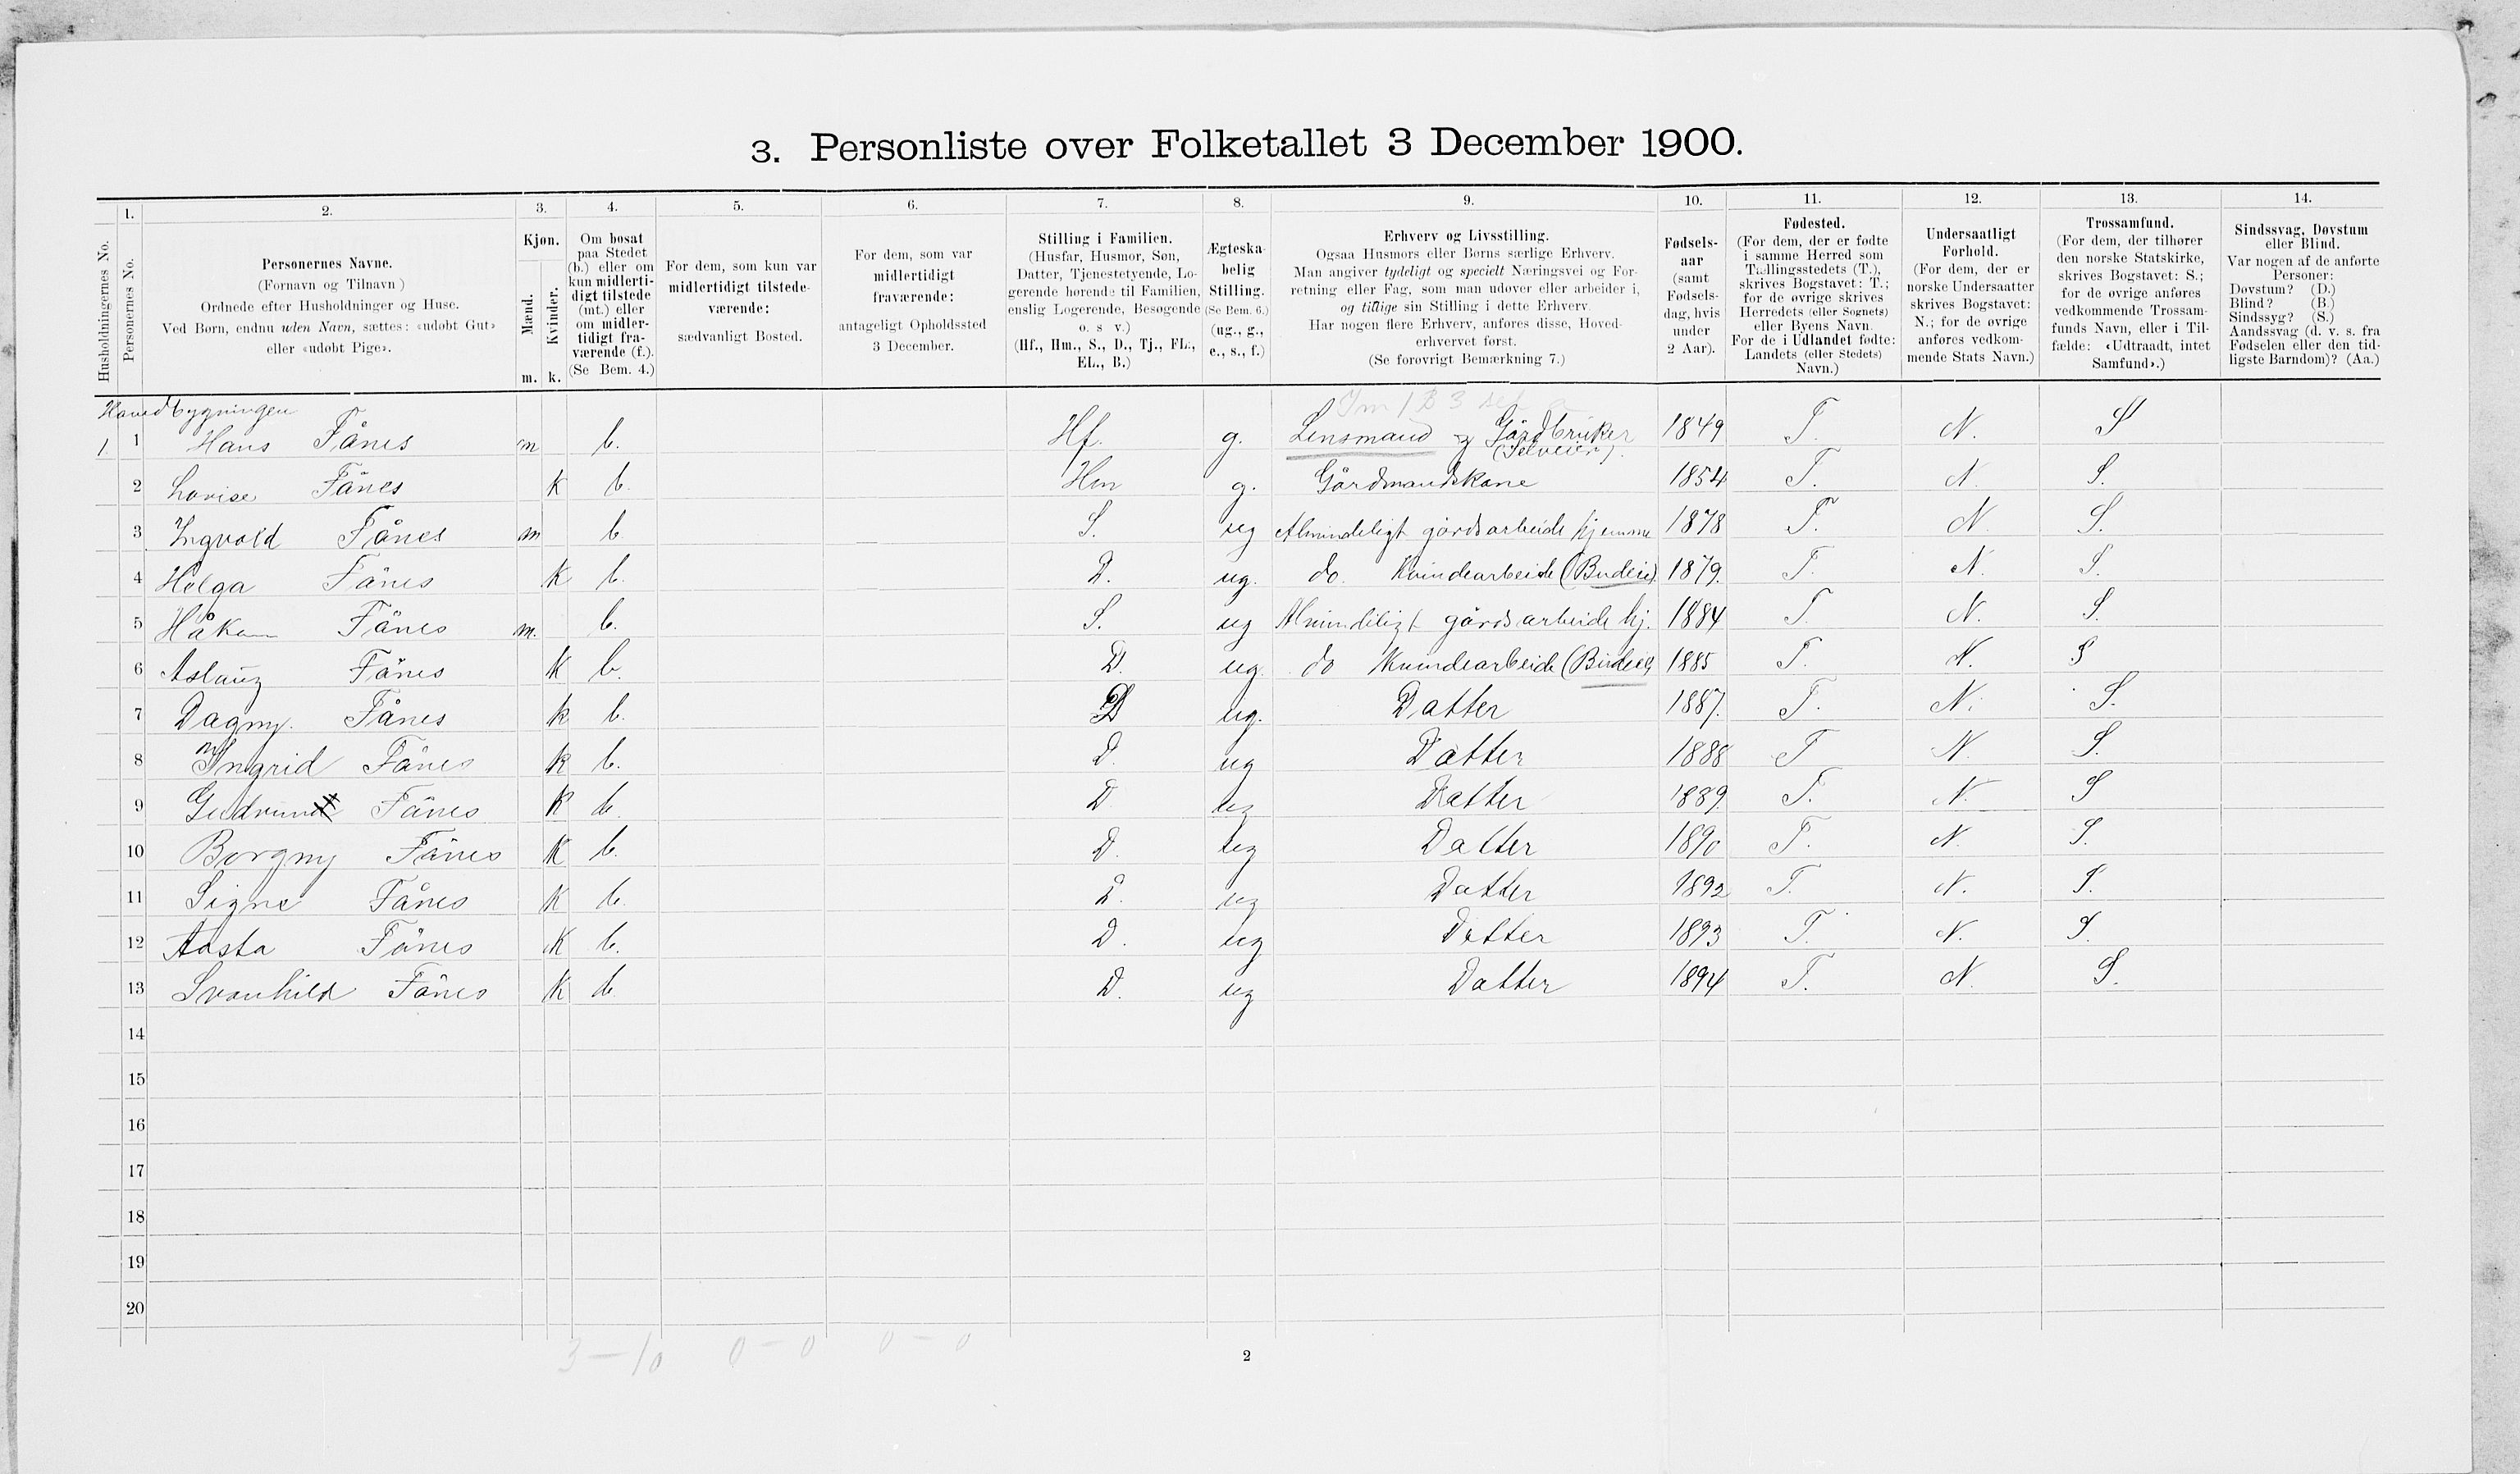 3. Personliste over Folketallet 3 December 1900.
1. 2. 3. 4. 5. 6. 7. 8. 9. 10. 11. 12. 13. 14.
Husholdningernes No.
Personernes No.
Personernes Navne.
(Fornavn og Tilnavn)
Ordnede efter Husholdninger og Huse.
Ved Børn, endnu uden Navn, sættes: «udøbt Gut»
eller «udøbt Pige».
Kjøn.
Mænd.
Kvinder.
m. k.
Om bosat
paa Stedet
(b.) eller om
kun midlerti-
digt tilstede
(mt.) eller
om midler-
tidigt fra-
værende (f.).
(Se Bem. 4.)
For dem, som kun var
midlertidigt tilstede-
værende:
sædvanligt Bosted.
For dem, som var
midlertidigt
fraværende:
antageligt Opholdssted
3 December.
Stilling i Familien.
(Husfar, Husmor, Søn,
Datter, Tjenestetyende, Lo-
gerende hørende til Familien,
enslig Logerende, Besøgende
o. s v.)
(Hf., Hm., S., D., Tj., FL.,
EL., B.)
Ægteska-
belig
Stilling.
(Se Bem. 6.)
(ug., g.,
e., s., f.)
Erhverv og Livsstilling.
Ogsaa Husmors eller Børns særlige Erhverv.
Man angiver tydeligt og specielt Næringsvei og For-
retning eller Fag, som man udøver eller arbeider i,
og tillige sin Stilling i dette Erhverv.
Har nogen flere Erhverv, anføres disse, Hoved-
erhvervet først.
(Se forøvrigt Bemærkning 7.)
Fødsels-
aar
(samt
Fødsels-
dag, hvis
under
2 Aar).
Fødested.
(For dem, der er fødte
i samme Herred som
Tællingsstedets (T.),
skrives Bogstavet: T.;
for de øvrige skrives
Herredets (eller Sognets)
eller Byens Navn.
For de i Udlandet fødte:
Landets (eller Stedets)
Navn.)
Undersaatligt
Forhold.
(For dem, der er
norske Undersaatter
skrives Bogstavet:
N.; for de øvrige
anføres vedkom-
mende Stats Navn.)
Trossamfund.
(For dem, der tilhører
den norske Statskirke,
skrives Bogstavet: S.;
for de øvrige anføres
vedkommende Trossam-
funds Navn, eller i Til-
fælde: «Udtraadt, intet
Samfund».)
Sindssvag, Døvstum
eller Blind.
Var nogen af de anførte
Personer:
Døvstum? (D.)
Blind? (B.)
Sindssyg? (S.)
Aandssvag (d. v. s. fra
Fødselen eller den tid-
ligste Barndom)? (Aa.)
Hovedbygningen
1 1 Hans Fånes m b. Hf. g. Lensmand og Gårdbruker 1849 T. N. S
(Selveier).
2 Lovise Fånes K b. Hm g. Gårdmandskone 1854 T. N. S.
3 Ingvald Fånes m b S. ug Almindeligt gårdsarbeide hjemme 1878 T. N S.
4 Helga Fånes K b. D. ug. do. Kvindearbeide (Budeie) 1879. T. N. S.
5 Håkon Fånes m. b. S. ug Almindeligt gårdsarbeide hj. 1884 T N. S.
6 Aslaug Fånes K b. D. ug. do Kvindearbeide (Budeie) 1885 T. N. S
7 Dagny. Fånes k b. D ug. Datter 1887. T. N. S.
8 Ingrid Fånes K b. D. ug Datter 1888 T N. S.
9 Gudrun Fånes K b. D ug Datter 1889. T. N. S
10 Borgny Fånes K b. D. ug Datter 1890 T. N. S.
11 Signe Fånes K b. D. ug Datter 1892 T. N. S.
12 Aasta Fånes K b. D. ug Datter 1893 T. N. S.
13 Svanhild Fånes K b. D. ug Datter 1894 T. N. S.
14
15
16
17
18
19
20
3 - 10 0 - 0 0 - 0
2